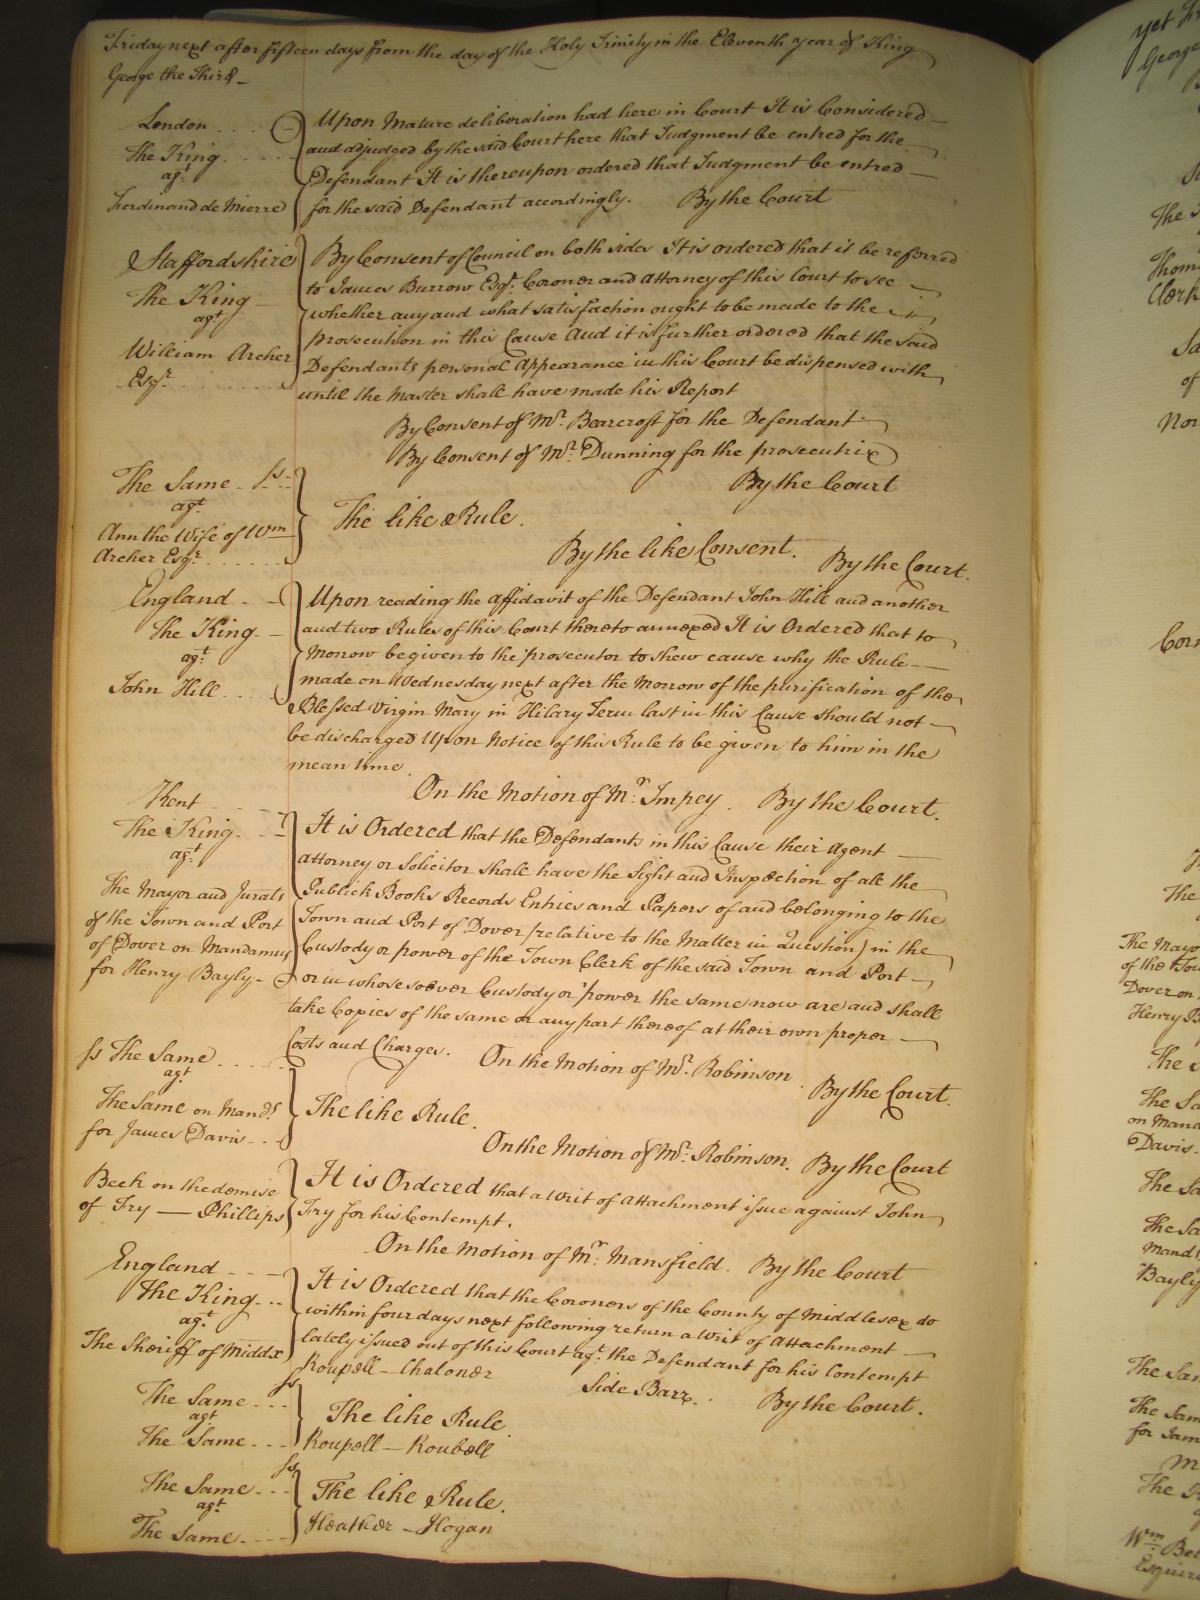 Friday next after fifteen days from the day of the Holy Trinity in the Eleventh year of King
George the Third
London
The King
agt
Ferdinand de Mierre
Upon Mature deliberation had here in Court It is Considered
and adjudged by the said Court here that Judgment be entred for the
Defendant It is thereupon ordered that Judgment be entred
for the said Defendant accordingly. By the Court
Staffordshire
The King
agt
William Archer
Esqr
By Consent of Council on both sides It is ordered that it be referred
to James Burrow Esqr. Coroner and Attorney of this Court to see
whether any and what satisfaction ought to be made to the
prosecution in this Cause And it is further ordered that the said
Defendants personal Appearance in this Court be dispensed with
until the Master shall have made his Report
By Consent of Mr. Bearcroft for the Defendant
By Consent of Mr. Dunning for the prosecutrix
By the Court
The Same ss
agt
Ann the Wife of Wm
Archer Esqr
The like Rule.
By the like Consent. By the Court.
England
The King
agt
John Hill
Upon reading the affidavit of the Defendant John Hill and another
and two Rules of this Court thereto annexed It is Ordered that to
Morrow be given to the prosecutor to shew cause why the Rule
made on Wednesday next after the Morrow of the purification of the
Blessed Virgin Mary in Hilary Term last in this Cause should not
be discharged Upon Notice of this Rule to be given to him in the
mean time.
On the Motion of Mr. Impey. By the Court.
Kent
The King
agt
The Mayor and Jurats
of the Town and Port
of Dover on Mandamus
for Henry Bayly
It is Ordered that the Defendants in this Cause their Agent
Attorney or Solicitor shall have the Sight and Inspection of all the
Publick Books Records Entries and Papers of and belonging to the
Town and Port of Dover (relative to the Matter in Question) in the
Custody or power of the Town Clerk of the said Town and Port
or in whose soever Custody or power the same now are and shall
take Copies of the same or any part thereof at their own proper
Costs and Charges. On the Motion of Mr. Robinson. By the Court.
ss The Same
agt
The Same on Mands
for James Davis
The like Rule.
On the Motion of Mr. Robinson. By the Court
Beek on the demise
of Fry — Phillips
It is Ordered that a Writ of Attachment issue against John
Fry for his Contempt.
On the Motion of Mr. Mansfield. By the Court
England
The King
agt
The Sheriff of Middx
It is Ordered that the Coroners of the County of Middlesex do
within four days next following return a Writ of Attachment
lately issued out of this Court agt. the Defendant for his Contempt
Roupell — Chaloner
Side Barr. By the Court.
The Same ss
agt
The Same
The like Rule.
Roupell — Roubell
The Same ss
agt
The Same
The like Rule.
Heather — Hogan
yet
George
The
Clerk
of
The
The Mayo
of the Tow
Dover on
Henry B
The S
The Sa
on Mand
Davis.
The Sa
The Sa
Mand
Bayly
The Sam
The Sam
for Jam
The K
Wm Be
Esquire